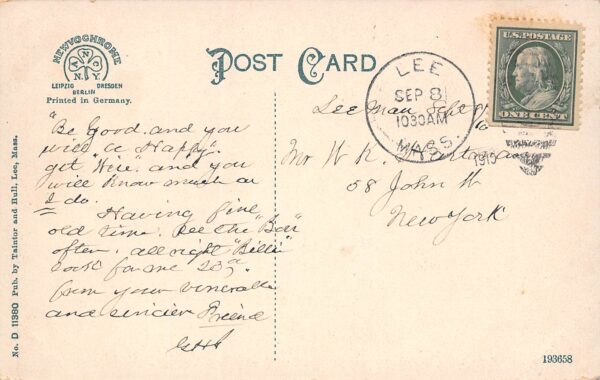 NEWVOCHROME
N
A C
N.Y.
LEIPZIG DRESDEN
BERLIN
Printed in Germany.
POST CARD
U.S. POSTAGE
ONE CENT
LEE
SEP 8
1030AM
MASS.
1910
Lee Mass Sept
Mr W. K.
58 John St
New York
"Be Good and you
will be Happy"
get "Wise" and you
will know much as
I do.
Having fine
old time. See the "Boss"
often. all right "Billie"
look for me 20th
from your venerable
and sincier Friend
No. D 11380 Pub. by Taintor and Hull, Lee, Mass.
193658